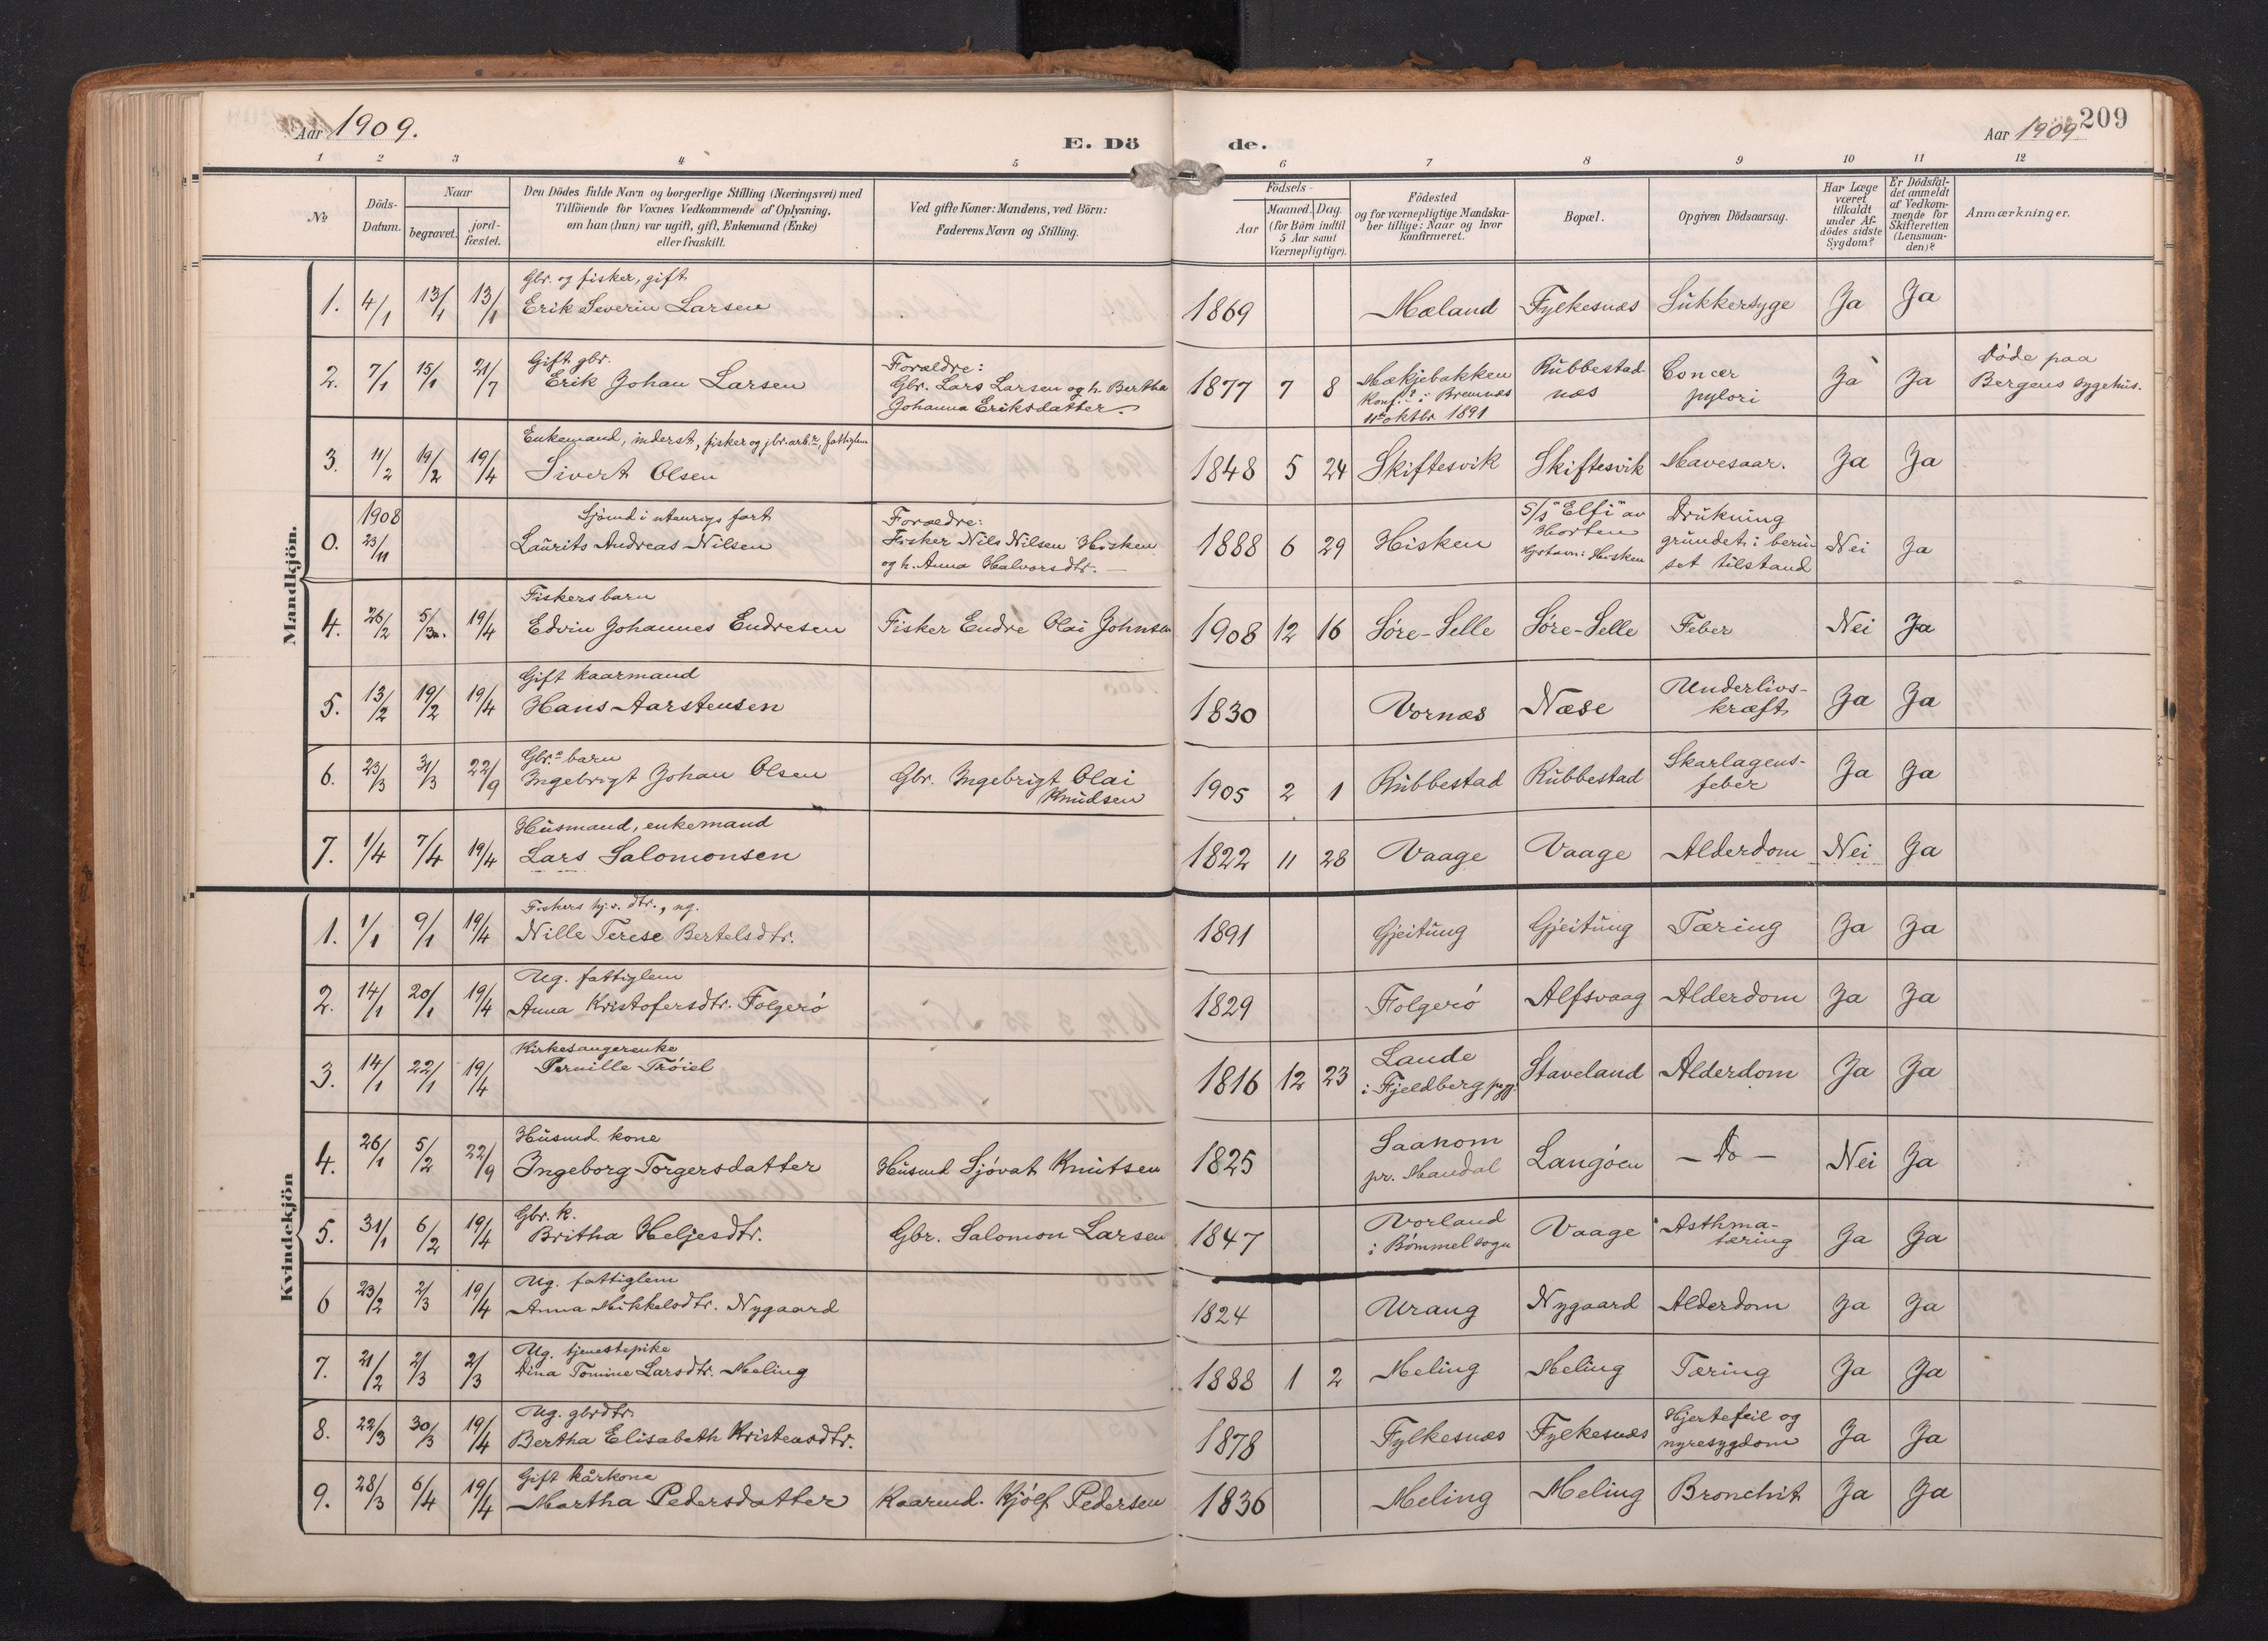 Aar 1909.
E. Dö
de.
Aar 1909
209
1 2 3 4 5 6 7 8 9 10 11 12
№
Döds-
Datum.
Naar
begravet.
jord-
fæstet.
Den Dödes fulde Navn og borgerlige Stilling (Næringsvei) med
Tilföiende for Voxnes Vedkommende af Oplysning,
om han (hun) var ugift, gift, Enkemand (Enke)
eller fraskilt.
Ved gifte Koner: Mandens, ved Börn:
Faderens Navn og Stilling.
Födsels-
Aar
Maaned. Dag.
(for Börn indtil
5 Aar samt
Værnepligtige).
Födested
og for værnepligtige Mandska-
ber tillige: Naar og hvor
konfirmeret.
Bopæl.
Opgiven Dödsaarsag.
Har Læge
været
tilkaldt
under Af-
dödes sidste
Sygdom?
Er Dödsfal-
det anmeldt
af Vedkom-
mende for
Skifteretten
(Lensman-
den)?
Anmærkninger.
Mandkjön.
Gbr. og fisker, gift
1. 4/1 13/1 13/1 Erik Severin Larsen 1869 Mæland Fylkesnæs Sukkersyge Ja Ja
Gift gbr.
2. 7/1 15/1 21/7 Erik Johan Larsen
Forældre:
Gbr. Lars Larsen og h. Bertha
Johanna Eriksdatter.
1877 7 8
Mækjebakken
Konf. i Bremnes
oktbr 1891
Rubbestad
næs
Concer
pylori
Ja Ja
Döde paa
Bergens sygehus.
Enkemand, inderst, fisker og jbr.arbr, fattiglem
3. 11/2 19/2 19/4 Sivert Olsen 1848 5 24 Skiftesvik Skiftesvik Mavesaar. Ja Ja
1908
0. 23/11
Sjömd i utenrigs fart
Laurits Andreas Nilsen
Forældre:
Fisker Nils Nilsen Hisken
og h. Anna Halvorsdtr.
1888 6 29 Hisken
S/s "Elfi" av
Horten
Hjstavn: Hisken
Drukning
grundet i beru-
set tilstand
Nei Ja
Fiskers barn
4. 26/2 5/3 19/4 Edvin Johannes Endresen Fisker Endre Olai Johnsen 1908 12 16 Söre-Selle Söre-Selle Feber Nei Ja
Gift kaarmand
5. 13/2 19/2 19/4 Hans Aarstensen 1830 Vornæs Næse
Underlivs-
kræft
Ja Ja
Gbr. barn
6. 23/3 31/3 22/9 Ingebrigt Johan Olsen
Gbr. Ingebrigt Olai
Knudsen
1905 2 1 Rubbestad Rubbestad
Skarlagens-
feber
Ja Ja
Husmand, enkemand
7. 1/4 7/4 19/4 Lars Salomonsen 1822 11 28 Vaage Vaage Alderdom Nei Ja
Kvindekjön
Fiskers dtr., ug.
1. 1/1 9/1 19/4 Nille Terese Bertelsdtr. 1891 Gjeitung Gjeitung Tæring Ja Ja
Ug. fattiglem
2. 14/1 20/1 19/4 Anna Kristofersdtr. Folgerö 1829 Folgerö Alfsvaag Alderdom Ja Ja
Kirkesangerenke
3. 14/1 22/1 19/4 Pernille Tröiel 1816 12 23
Lande
i Fjeldberg pgj.
Staveland Alderdom Ja Ja
Husmd. kone
4. 26/1 5/2 22/9 Ingeborg Torgersdatter Husmd Sjövat Knutsen 1825
Saanom
pr. Mandal
Langöen – Do – Nei Ja
Gbr. k.
5. 31/1 6/2 19/4 Britha Heljesdtr. Gbr. Salomon Larsen 1847
Vorland
i Bömmel sogn
Vaage
Asthma-
tæring
Ja Ja
Ug. fattiglem
6 23/2 2/3 19/4 Anna Mikkelsdtr. Nygaard 1824 Urang Nygaard Alderdom Ja Ja
Ug. tjenestepike
7. 21/2 2/3 2/3 Dina Tomine Larsdtr. Meling 1888 1 2 Meling Meling Tæring Ja Ja
Ug. gbrdtr.
8. 22/3 30/3 19/4 Bertha Elisabeth Kristensdtr. 1878 Fylkesnæs Fylkesnæs
Hjertefeil og
nyresygdom
Ja Ja
Gift kårkone
9. 28/3 6/4 19/4 Martha Pedersdatter Kaarmd. Kjölf Pedersen 1836 Meling Meling Bronchit Ja Ja